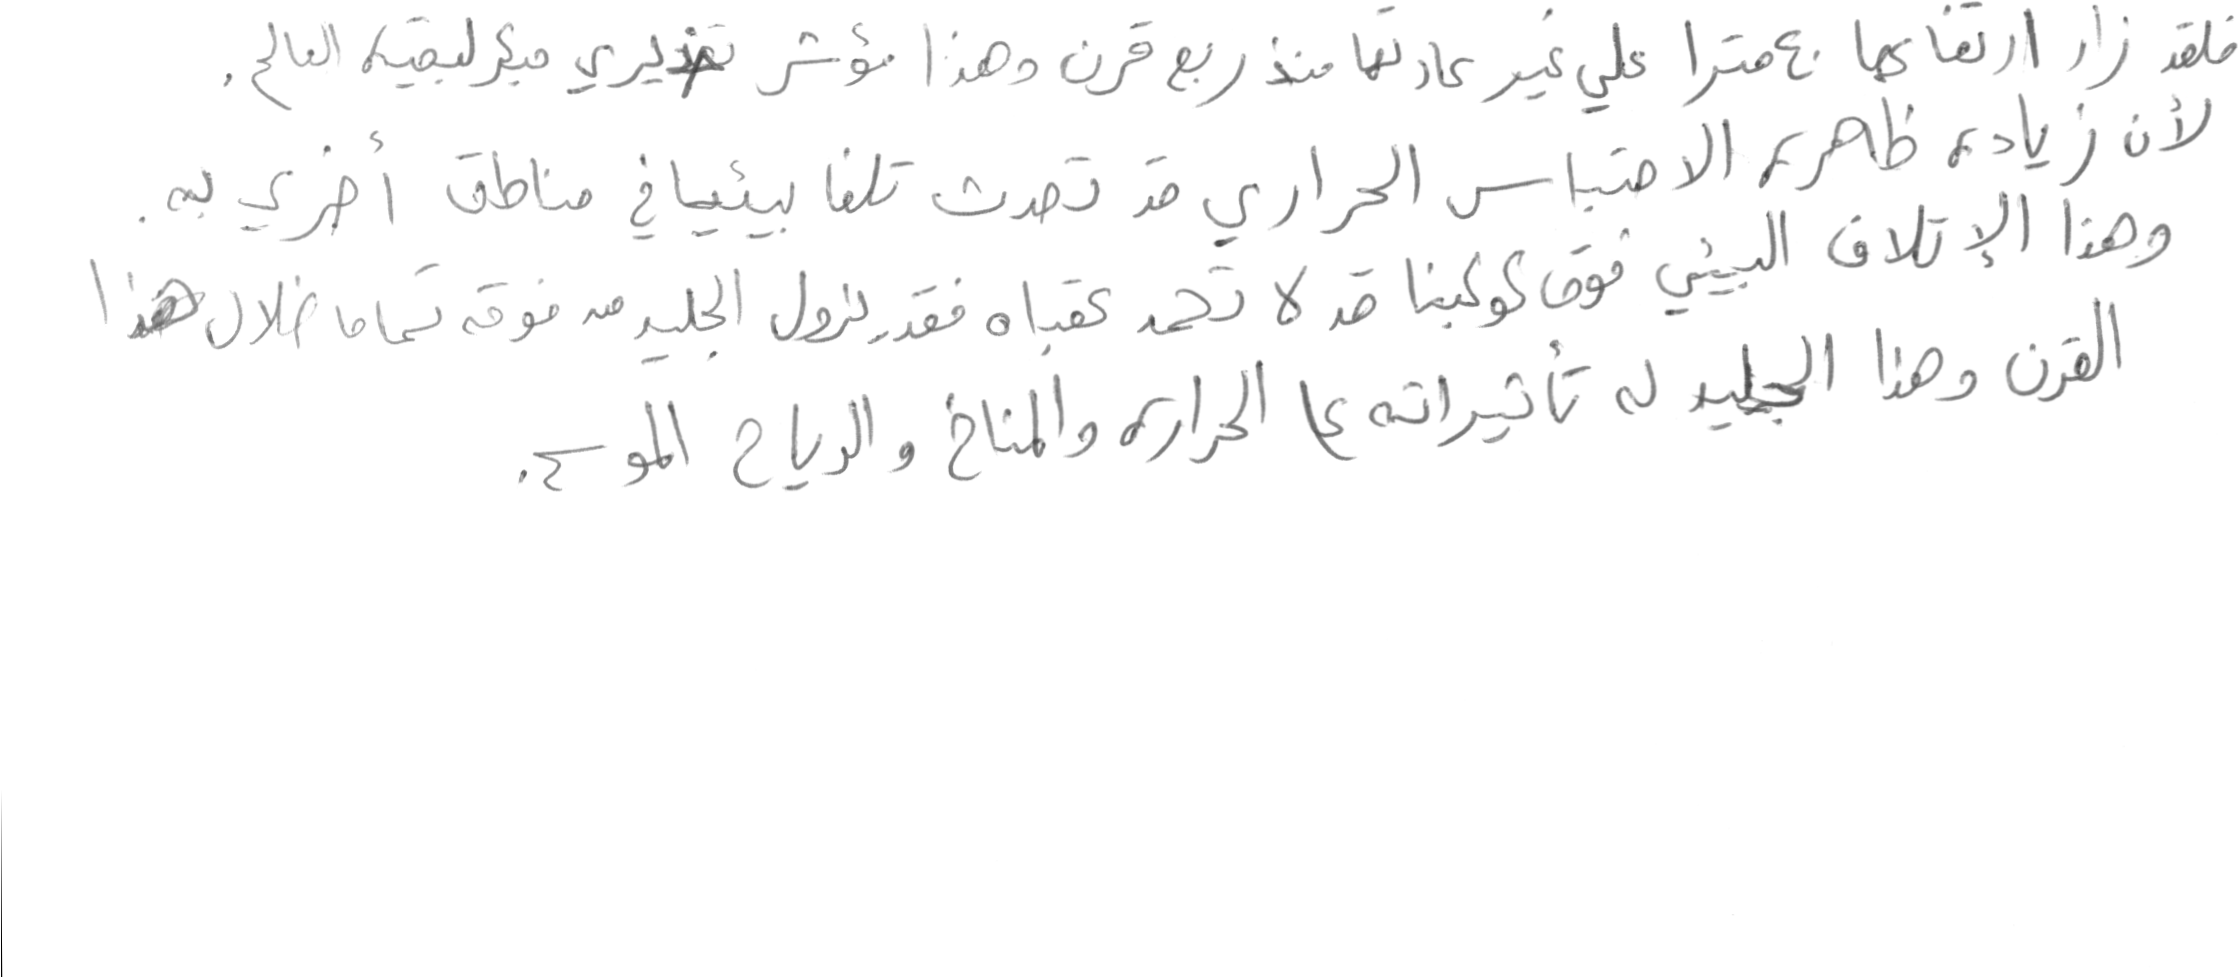 فلقد زاد ارتفاعها ٤٠ مترا علي غير عادتها منذ ربع قرن وهذا مؤشر تحذيري مبكر لبقية العالم.
لأن زيادة ظاهرة الاحتباس الحراري قد تحدث تلفا بيئيا في مناطق أخري به.
وهذا الإتلاف البيئي فوق كوكبنا قد لا تحمد عقباه فقد يزول الجليد من فوقه تماما خلال هذا
القرن وهذا الجليد له تأثيراته على الحرارة والمناخ والرياح الموسمية.